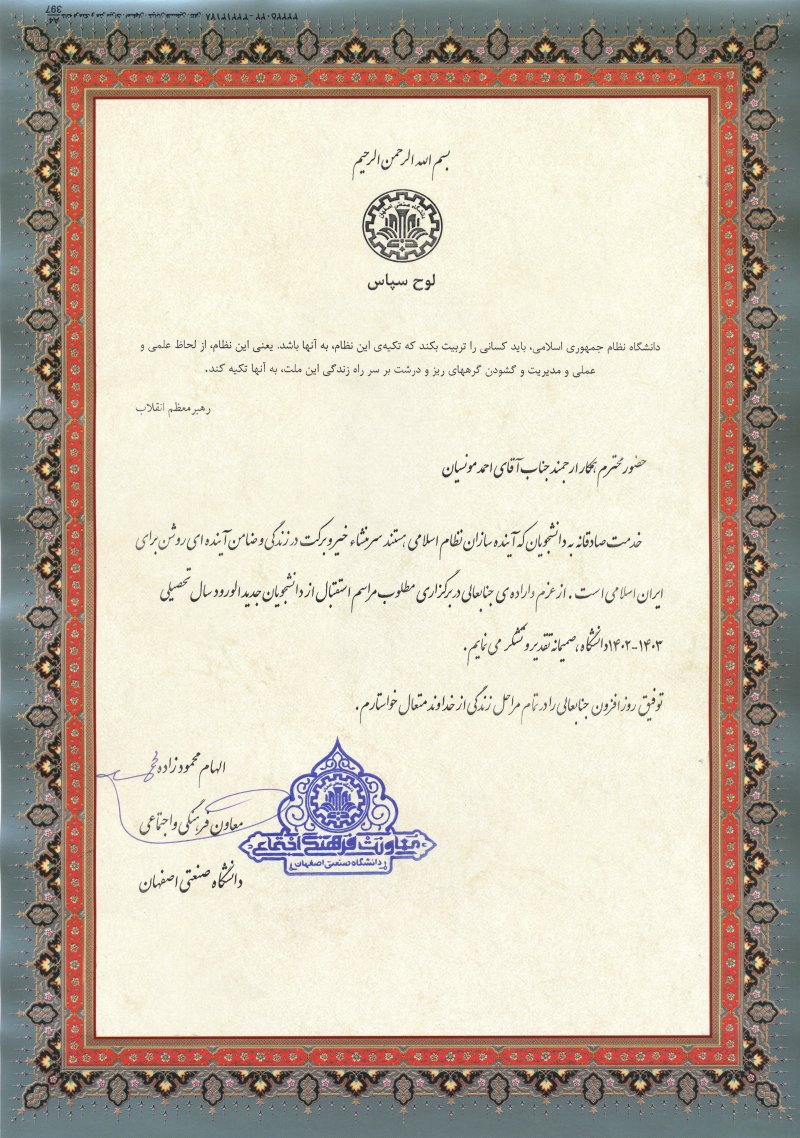 بسم الله الرحمن الرحیم
دانشگاه صنعتی اصفهان
لوح سپاس
دانشگاه نظام جمهوری اسلامی، باید کسانی را تربیت بکند که تکیه‌ی این نظام، به آنها باشد. یعنی این نظام، از لحاظ علمی و
عملی و مدیریت و گشودن گرههای ریز و درشت بر سر راه زندگی این ملت، به آنها تکیه کند.
رهبر معظم انقلاب
حضور محترم همکار ارجمند جناب آقای احمد مونسیان
خدمت صادقانه به دانشجویان که آینده سازان نظام اسلامی هستند سرمنشاء خیر و برکت در زندگی و ضامن آینده ای روشن برای
ایران اسلامی است . از عزم و اراده ی جنابعالی در برگزاری مطلوب مراسم استقبال از دانشجویان جدیدالورود سال تحصیلی
۱۴۰۲-۱۴۰۳ دانشگاه ، صمیمانه تقدیر و تشکر می نمایم .
توفیق روز افزون جنابعالی را در تمام مراحل زندگی از خداوند متعال خواستارم .
الهام محمود زاده
معاون فرهنگی و اجتماعی
دانشگاه صنعتی اصفهان
معاونت فرهنگی اجتماعی
دانشگاه صنعتی اصفهان